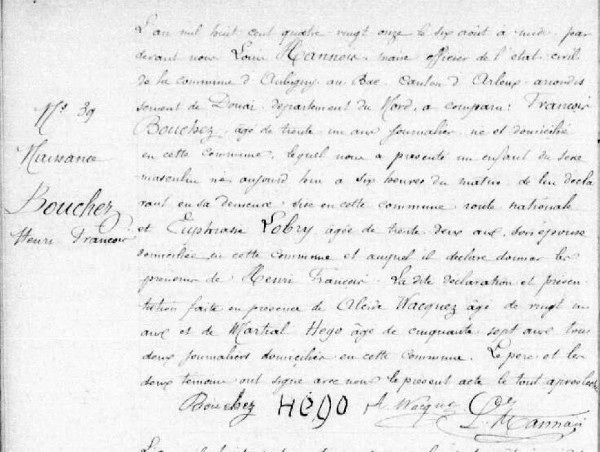 N° 39
Naissance
Bouchez
Henri François
L'an mil huit cent quatre vingt onze le six août à midi par
devant nous Louis Mannois maire officier de l'état civil
de la commune d'Aubigny au Bac canton d'Arleux arrondis
sement de Douai département du Nord, a comparu : François
Bouchez, âgé de trente un ans journalier né et domicilié
en cette commune, lequel nous a présenté un enfant du sexe
masculin né aujourd'hui à six heures du matin de lui décla
rant en sa demeure sise en cette commune route nationale
et Euphrasie Lobry âgée de trente deux ans, son épouse
domiciliée en cette commune et auquel il déclare donner les
prénoms de Henri François. La dite déclaration et présen
tation faite en présence de Alcide Wacquez âgé de vingt un
ans et de Martial Hego âgé de cinquante sept ans tous
deux journaliers domiciliés en cette commune. Le père et les
deux témoins ont signé avec nous le présent acte le tout après lecture
Bouchez HÉGO A Wacquez L. Mannois